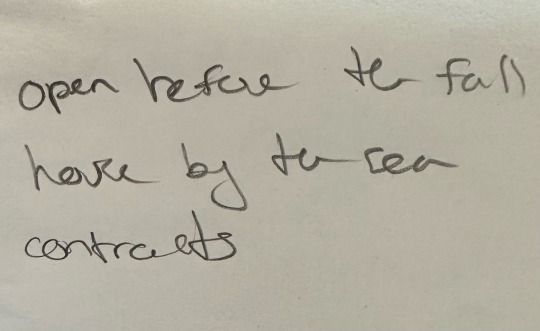 open before the fall
house by the sea
contracts